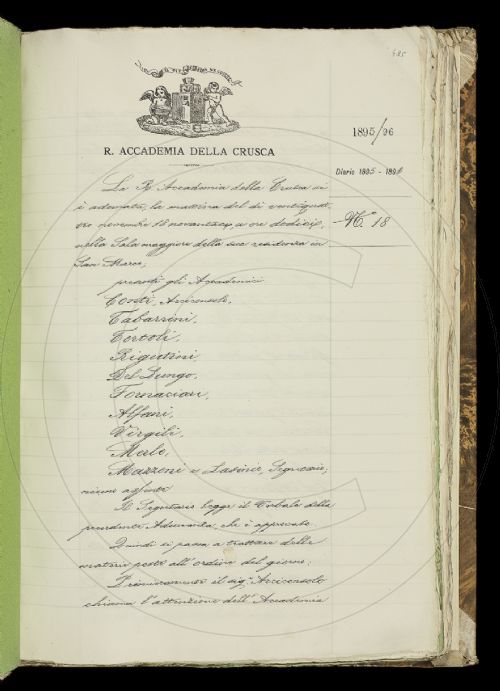 625
R. ACCADEMIA DELLA CRUSCA
1895/96
Diario 1895 - 1896
N.° 18
La R. Accademia della Crusca si
è adunata, la mattina del dì ventiquat-
tro novembre 1895 a ore dodici,
nella Sala maggiore della sua residenza in
San Marco,
presenti gli Accademici
Conti, Arciconsolo,
Tabarrini,
Tortoli,
Rigutini
Del Lungo,
Fornaciari,
Alfani,
Virgilj,
Merlo,
Mazzoni e Lasinio, Segretario,
niuno assente
Il Segretario legge il Verbale della
precedente Adunanza, che è approvato.
Quindi si passa a trattare delle
materie poste all'ordine del giorno:
Primieramente il sig.r Arciconsolo
chiama l'attenzione dell'Accademia